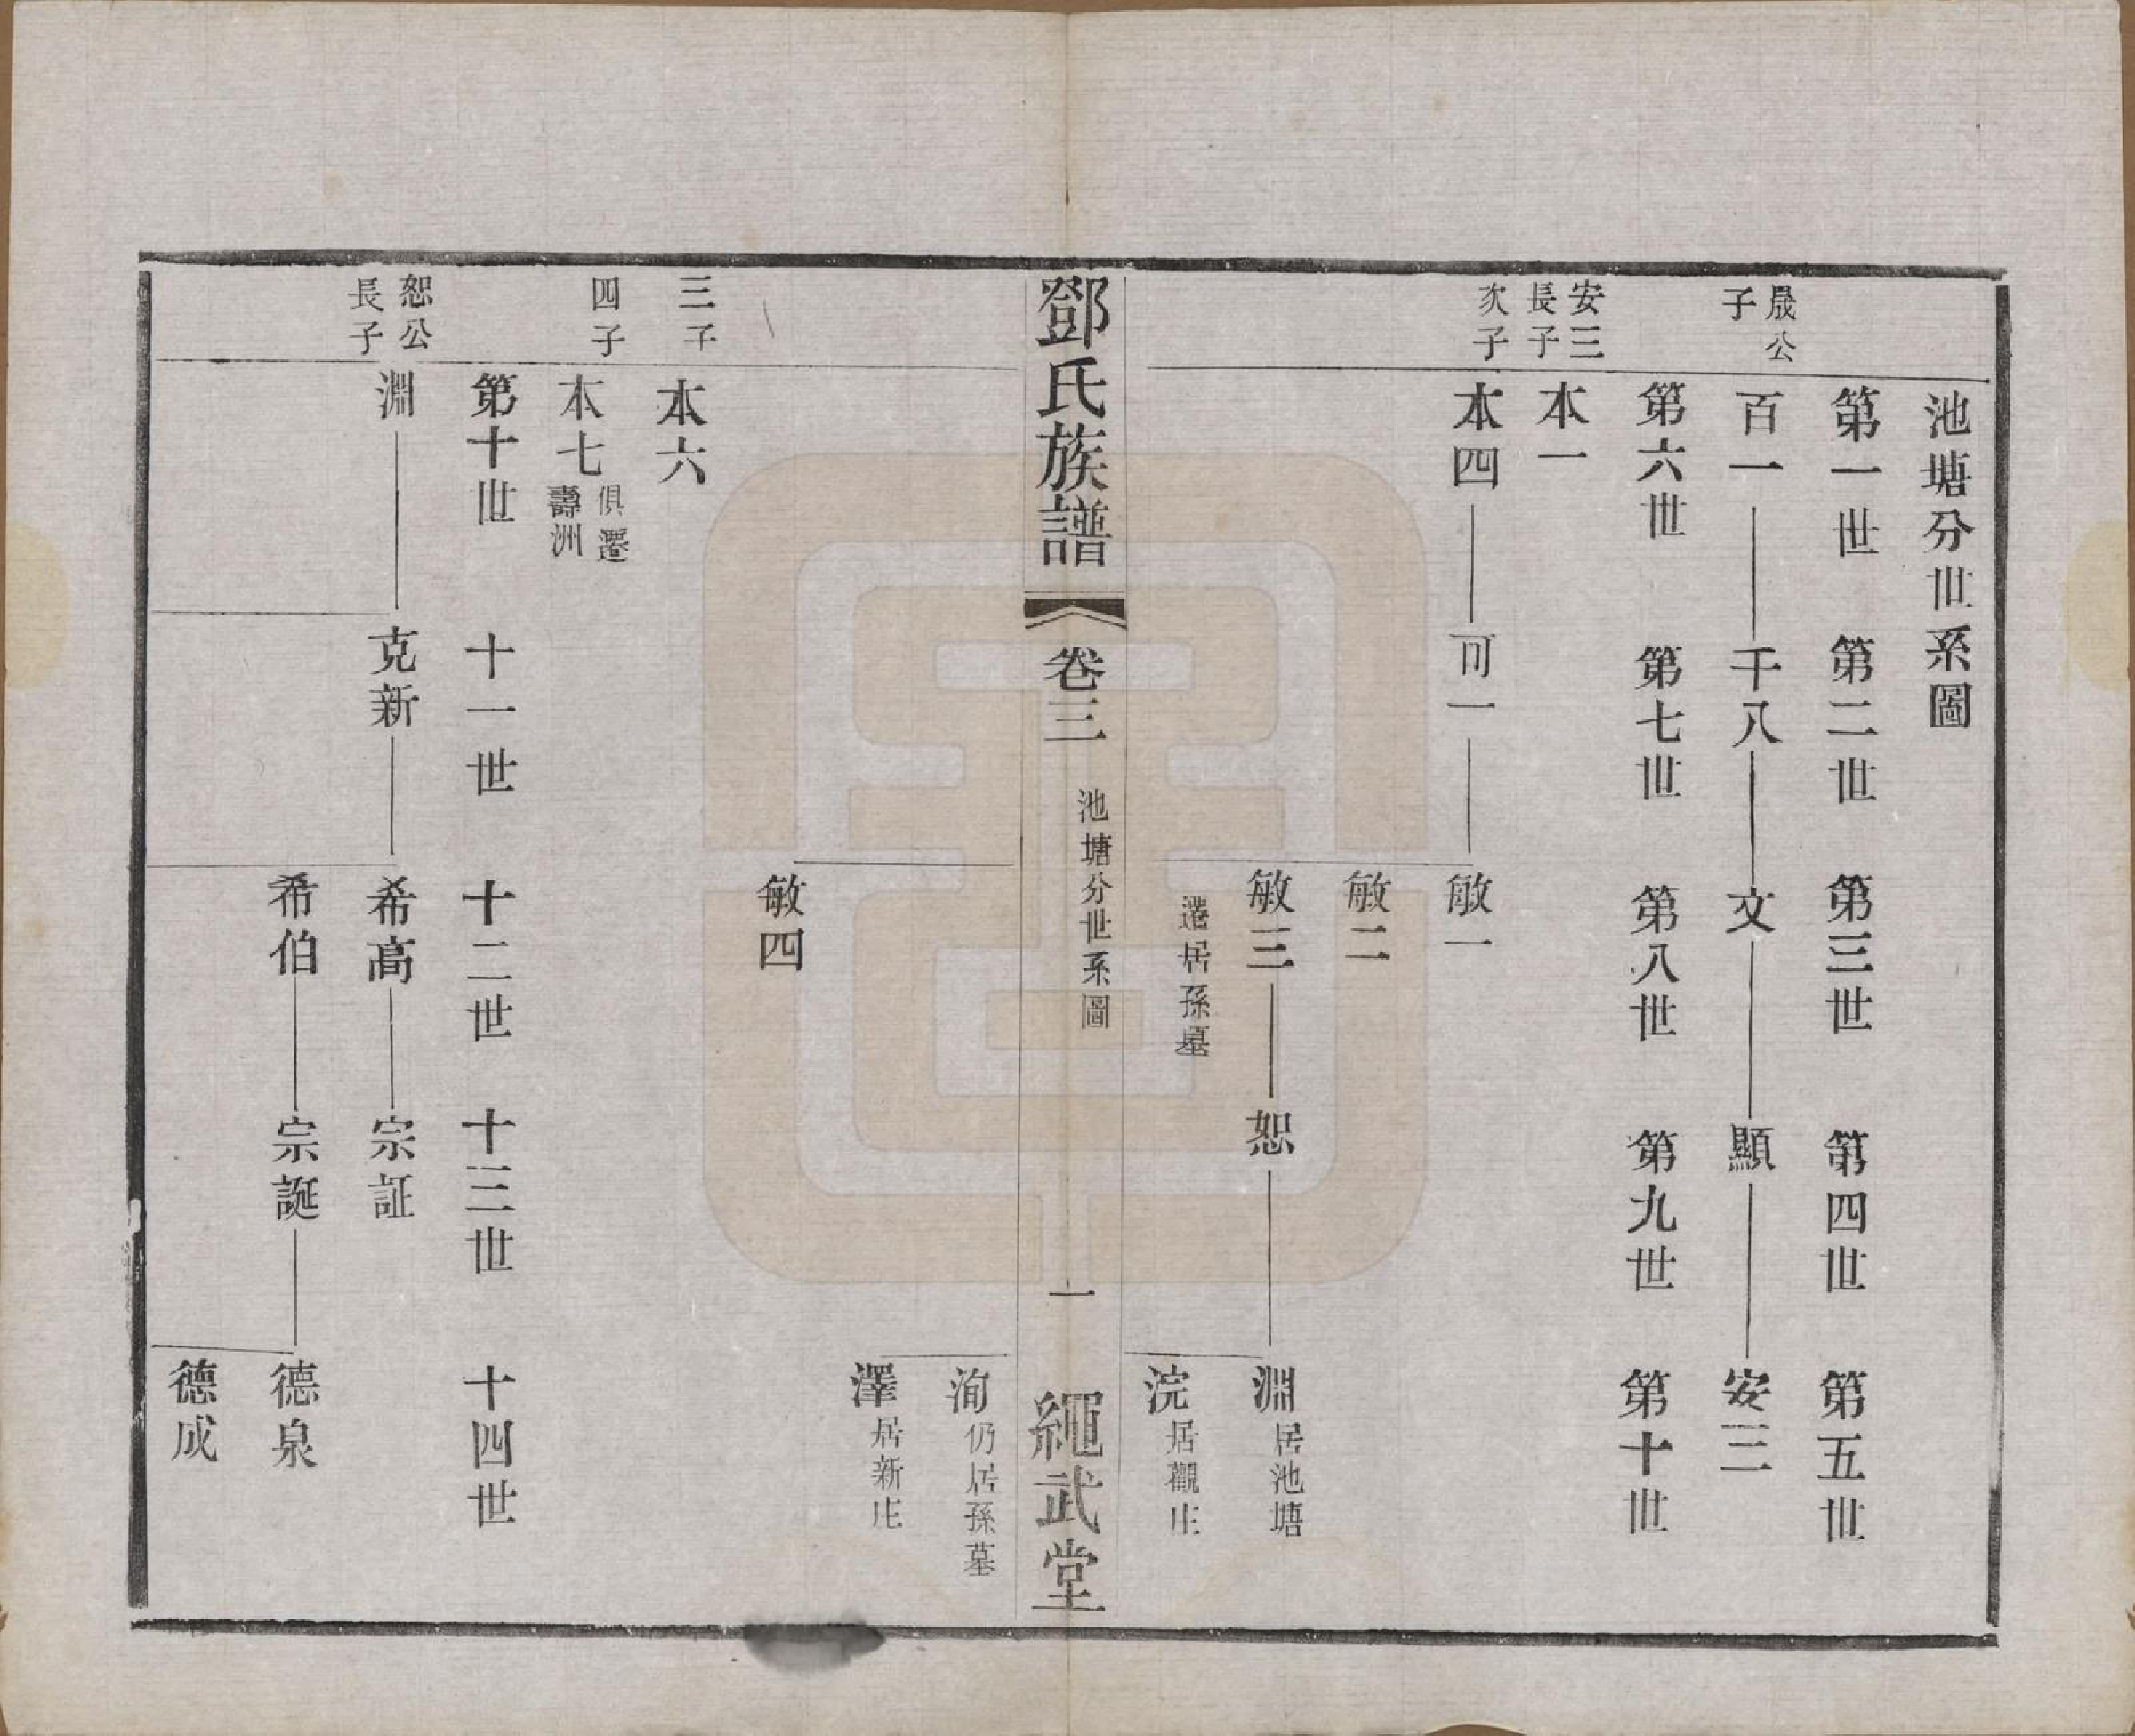 池塘分世系圖
第一世 第二世 第三世 第四世 第五世
晟公子
百一 千八 文 顯 安三
第六世 第七世 第八世 第九世 第十世
安三長子
本一
次子
本四 可一 敏一
敏二
敏三 恕 淵 居池塘
遷居孫墓
浣 居觀庄
鄧氏族譜 卷三 池塘分世系圖 一 繩武堂
洵 仍居孫墓
澤 居新庄
敏四
三子
本六
四子
本七 俱遷壽洲
第十世 十一世 十二世 十三世 十四世
恕公長子
淵 克新 希高 宗証
希伯 宗誕 德泉
德成